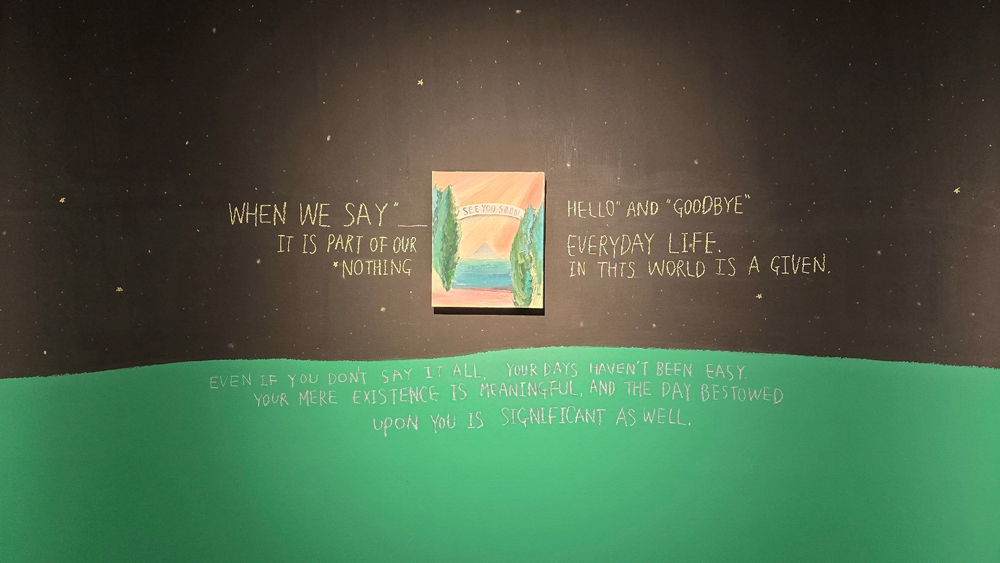 WHEN WE SAY "__ HELLO" AND "GOODBYE"
IT IS PART OF OUR EVERYDAY LIFE.
*NOTHING IN THIS WORLD IS A GIVEN.
SEE YOU SOON
EVEN IF YOU DON'T SAY IT ALL, YOUR DAYS HAVEN'T BEEN EASY.
YOUR MERE EXISTENCE IS MEANINGFUL, AND THE DAY BESTOWED
UPON YOU IS SIGNIFICANT AS WELL.